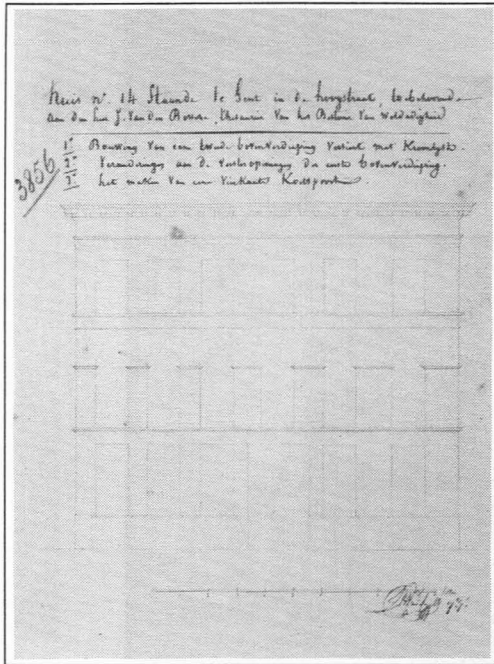 Huis nr. 14 Staande te Gent in de hoogstraat, toebehoorende
aan den heer J. Van den Bossche, thesaurier Van het Bureau Van weldadigheid
1° Bouwing Van eene tweede bovenverdieping versiert met Kroonlyst.
2° Veranderingen aan de vensteropeningen der eerste bovenverdieping.
3° het maken Van een Vierkante Koetspoort
3856